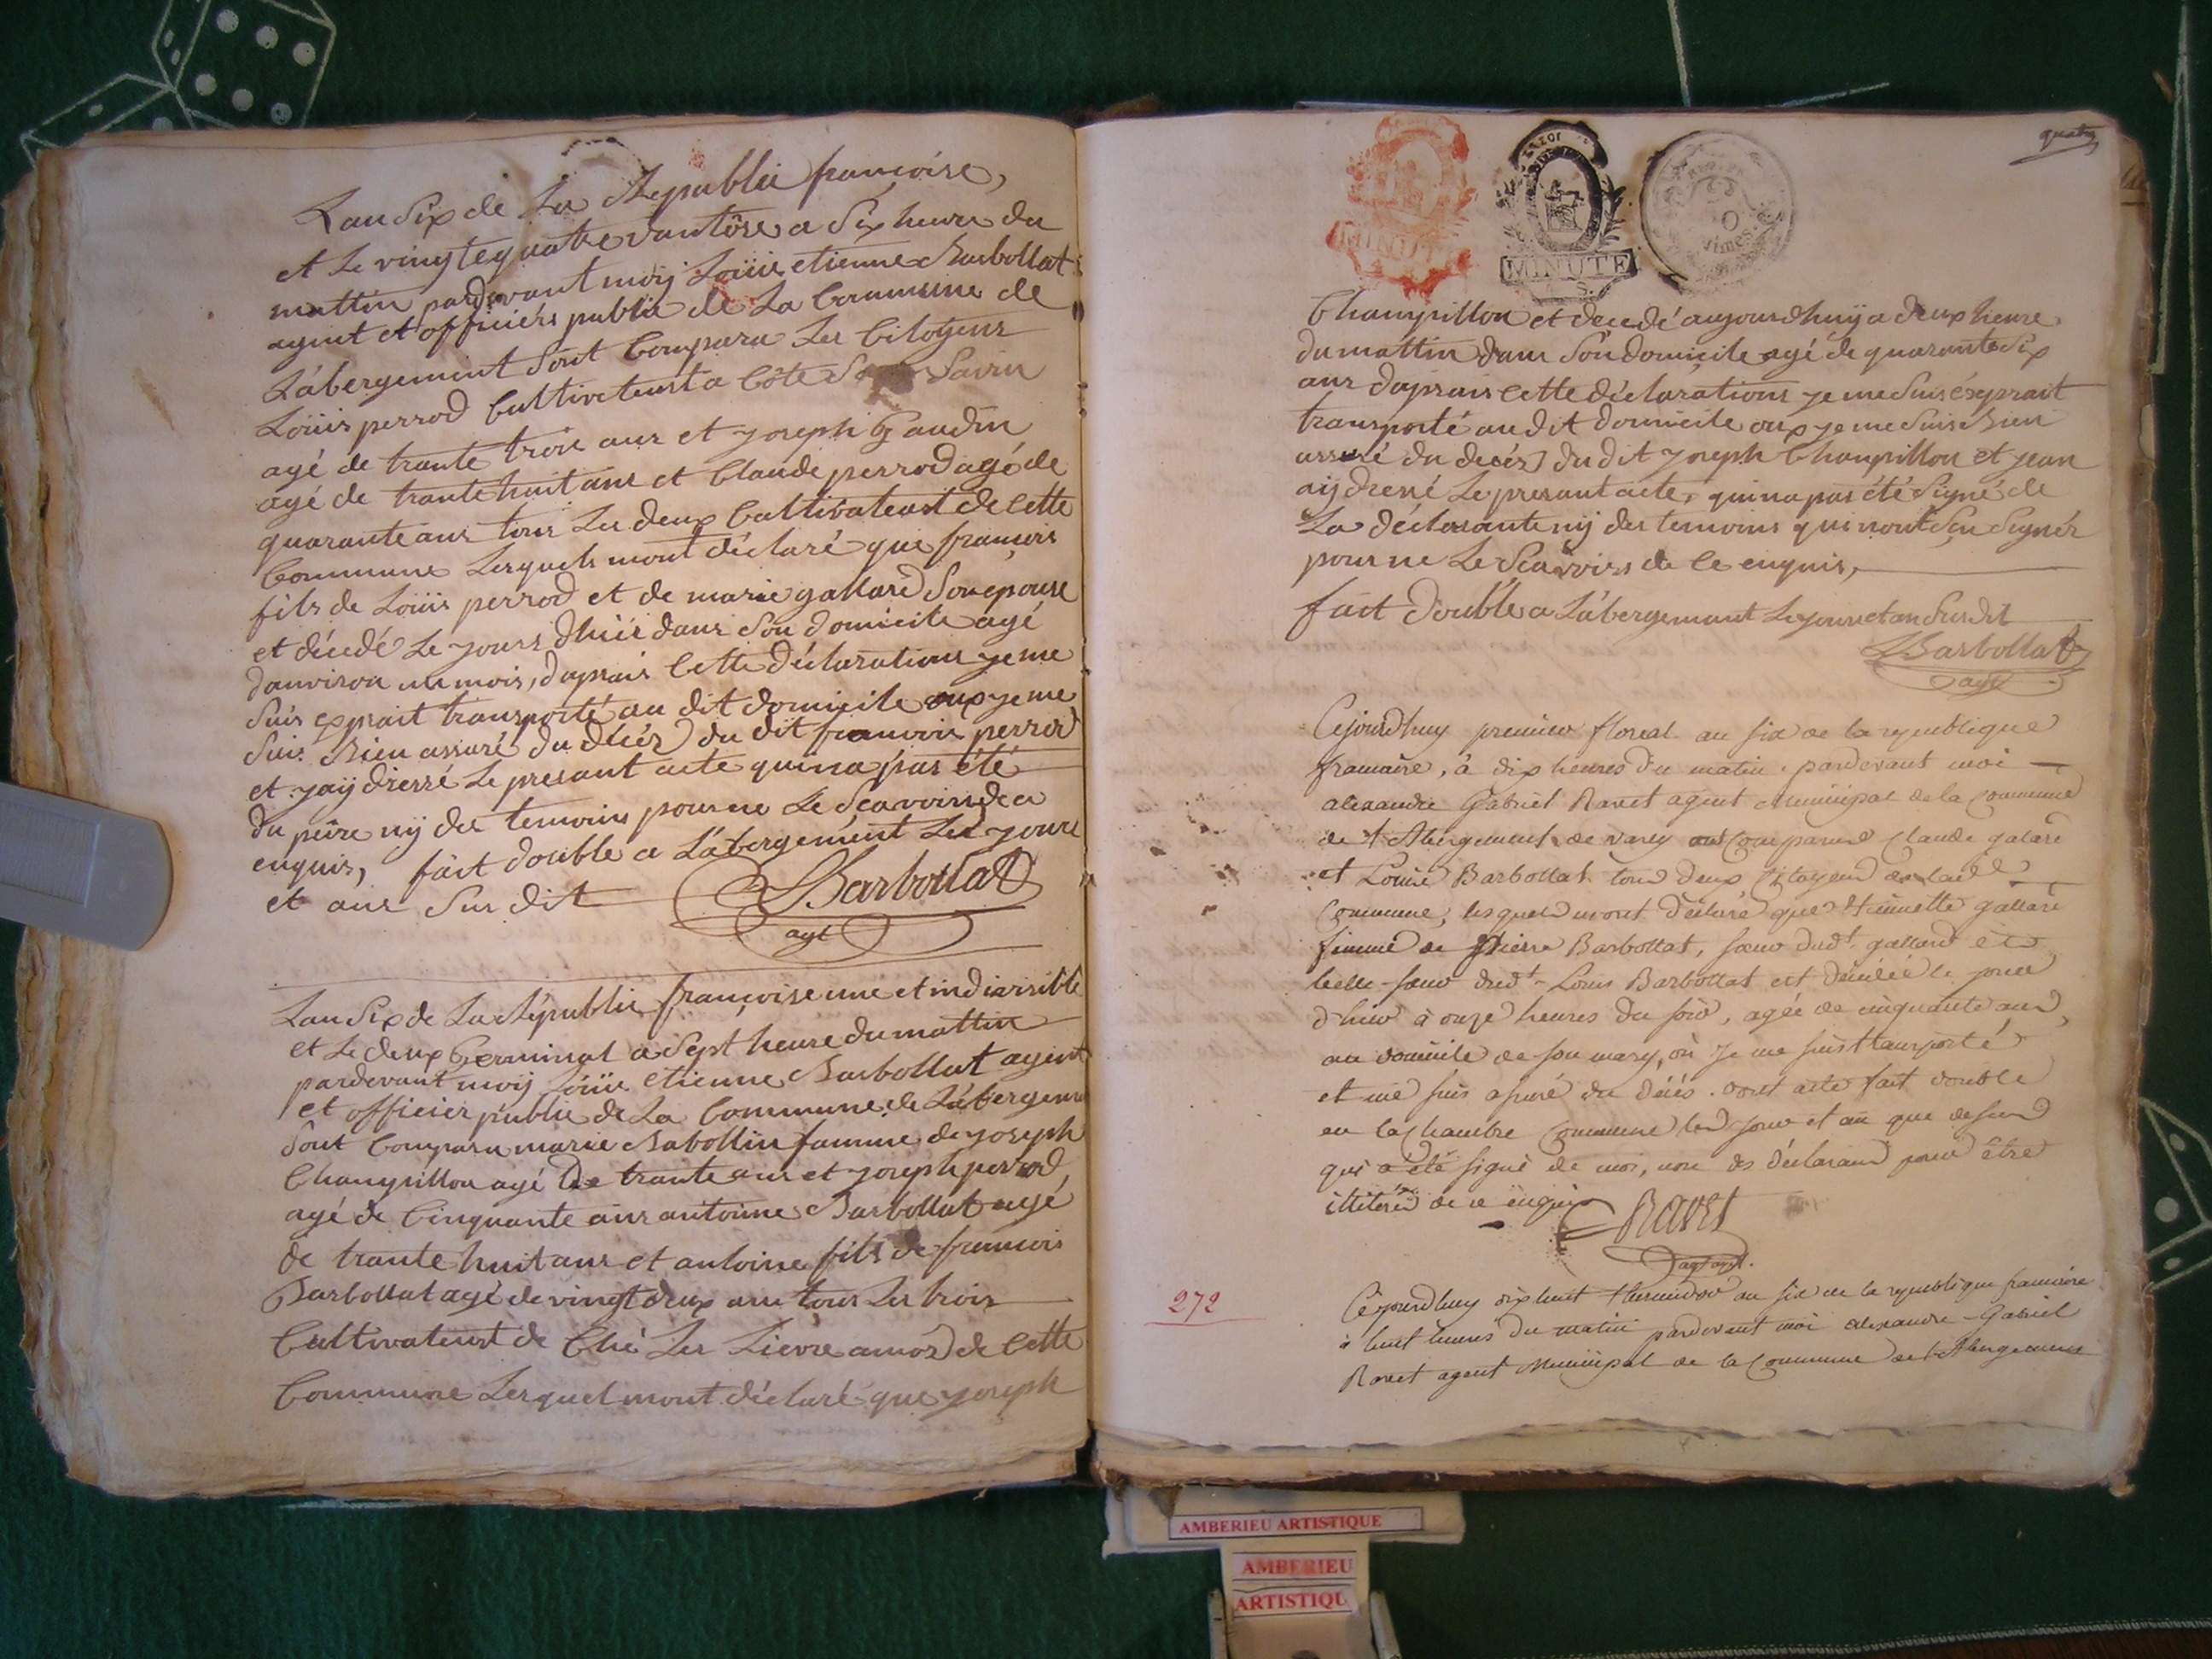 Lan Six de La Republic françoise,
et Le vingtequatre vantôse a Six heure du
mattin pardevant moij Loüis etienne Barbollat
agent et officiérs public de La Commune de
Labergement Sont Compara Les Citoÿens
Loüis perrod Cultivateurt a Côte Savin
agé de trante trois ans et joseph Gaudin
agé de trante huit ans et Claude perrod agé de
quarante ans tous Les deux Cultivateurt de Cette
Commune Lesquels mont déclaré que francois
fils de Loüis perrod et de marie gallard Son epouse
et décedé Le jours dhüis dans Son domicile agé
danviron un mois, daprais Cette déclarations je me
Suis exprait transporté au dit domicile oux je me
Suis Bien assuré du décéz du dit francois perrod
et jaij dressé Le presant acte qui na pas été
du péire nij des temoins pour ne Le Scavoirs de ce
enquis, fait double a Labergement Les jours
et ans Sus dit LBarbollat
agt
Lan Six de La Républic françoise une et indiavisible
et Le deux Germinal a Sept heure du mattin
pardevant moij Loüis étienne Barbollat agent
et officier public de La Commune de Labergem
Sont Compara marie Rabollin famme de joseph
Champillon agé de trante ans et joseph perrod,
agé de Cinquante ans antoinne Barbollat agé
de trante huit ans et antoine fils de francois
Barbollat agé de vingt deux ans tous Les trois
Cultivateurt de Ché Les Lievre amos de Cette
Commune Lesquel mont déclaré que joseph
quatre
MINUTE
MINUTE
S.
Champillon et decedé aujourdhuij a deux heure
du mattin dans Son domicile agé de quarante Six
ans daprais Cette déclarations je me Suis éxprait
transporté au dit domicile oux je me Suis Bien
assuré du decéz du dit joseph Champillon et jean
aij dressé Le presant acte, qui na pas été Signé de
La déclarante nij des temoins qui nont Sçu Signér
pour ne Le Scavoirs de Ce enquis,
fait double a Labergemant Le jours et an Susdit
LBarbollat
agt
Cejourdhuy premier floreal an six de la republique
francaise, à dix heures du matin, pardevant moi
alexandre Gabriel Ravet agent municipal de la Commune
de l'Abergement de varey ont Comparus Claude galard
et Louis Barbollat tous deux Citoyens de lad.
Commune, lesquels m'ont déclaré que gallard
femme de pierre Barbollat, soeur dud.t gallard et
belle-soeur dud.t Louis Barbollat est décédée le jour
d'hier à onze heures du soir, agée de cinquante ans,
au domicile de son mary, où Je me suis transporté
et me suis assuré du décés. dont acte fait double
en la Chambre Commune led. jour et an que dessus
qui a été signé de moi, non des déclarans pour être
illitérés de ce enquis RAVET
agt mpl.
272
Cejourdhuy dix huit thermidor an six de la republique francaise
à huit heures du matin pardevant moi alexandre-Gabriel
Ravet agent Municipal de la Commune de l'Abergement
AMBERIEU ARTISTIQUE
AMBERIEU
ARTISTIQU